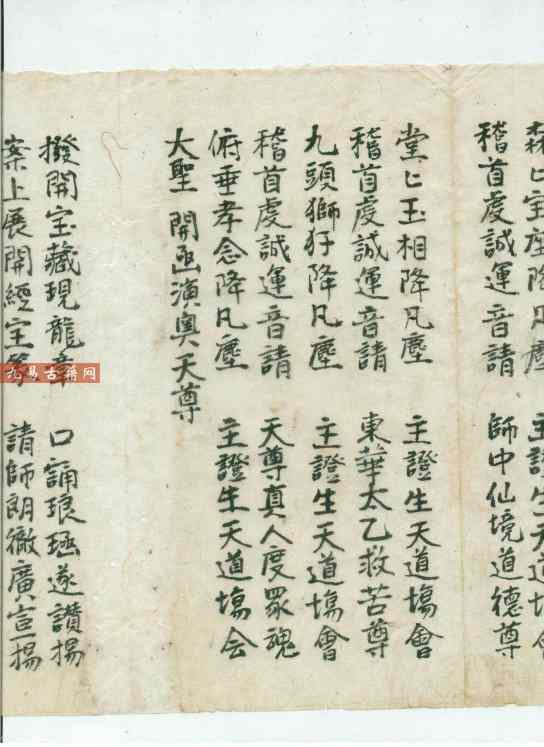 森匕宝座降凡塵 主證生天道塲會
稽首虔誠運音請 師中仙境道德尊
堂匕玉相降凡塵 主證生天道塲會
稽首虔誠運音請 東華太乙救苦尊
九頭獅犼降凡塵 主證生天道塲會
稽首虔誠運音請 天尊真人度眾魂
俯垂孝念降凡塵 主證生天道塲会
大聖 開函演奧天尊
撥開宝藏現龍章 口誦琅函遂讚揚
案上展開經宝笈 請師朗徹廣宣揚
九易古籍网